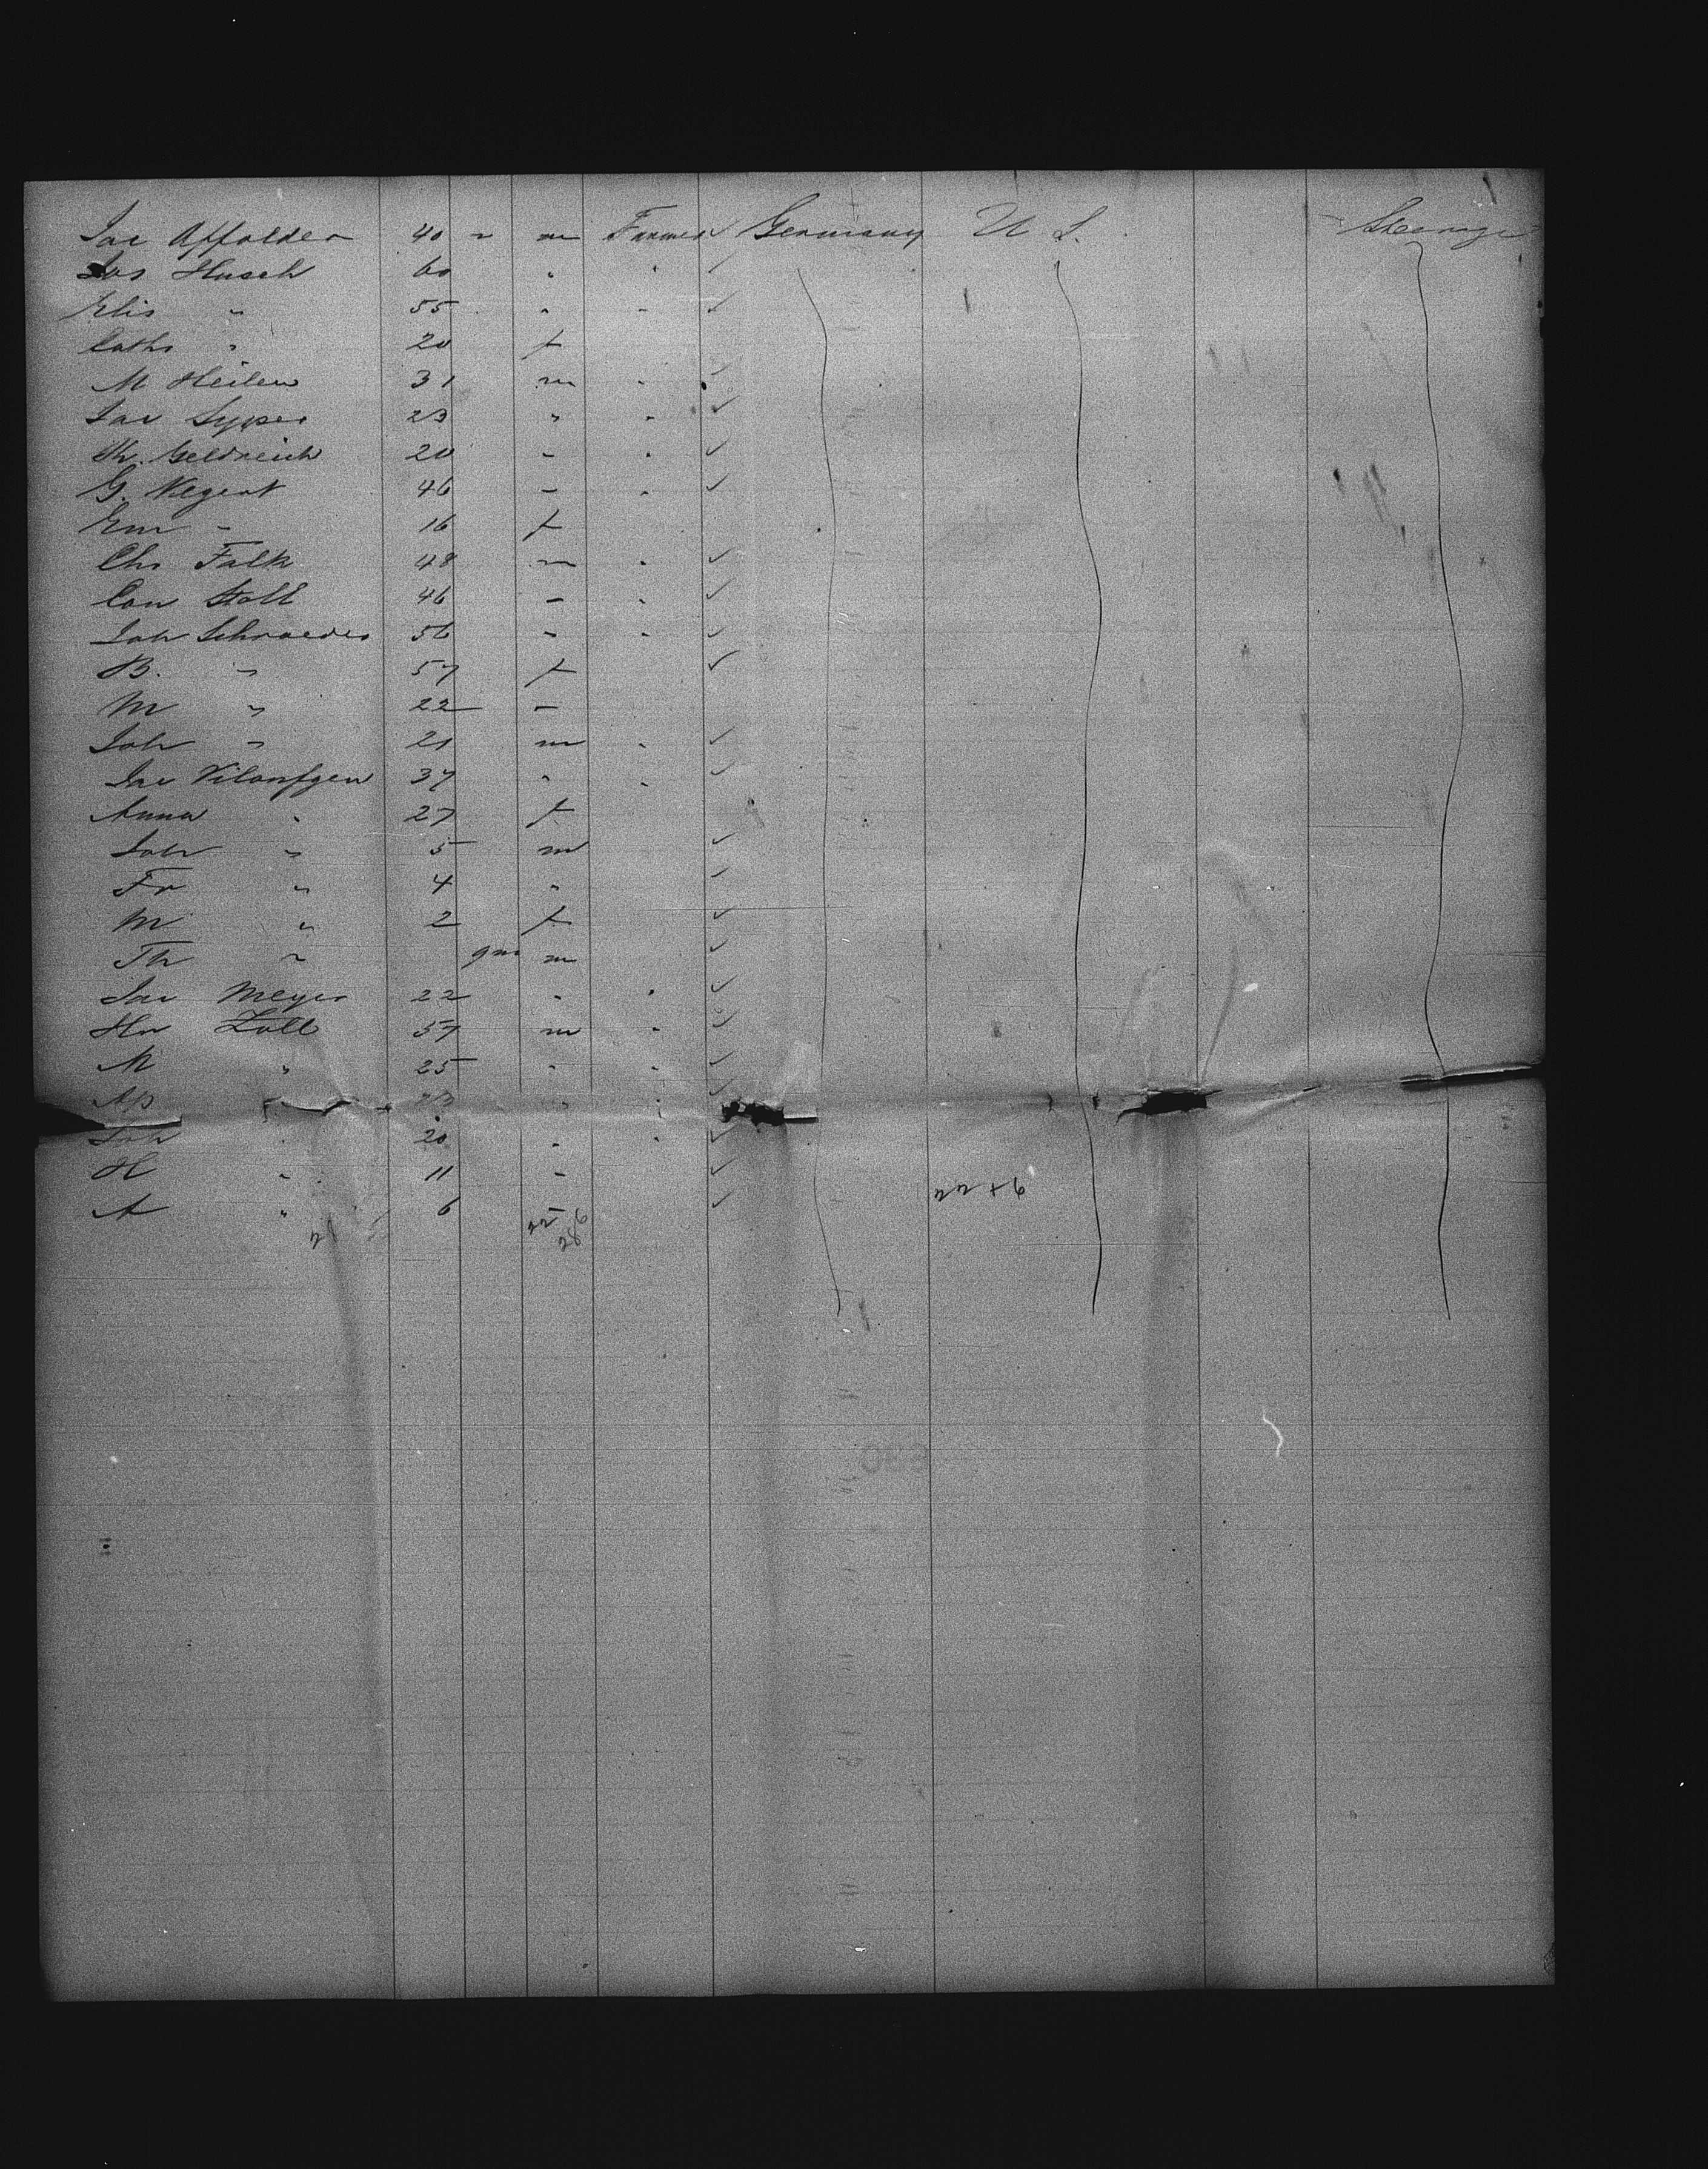 Jac Affolder 40 " m Farmer ✓ Germany U S. Steerage
Jos Husch 60 " " ✓
Elis " 55 " " ✓
Cath " 20 f
M Heilen 31 m " ✓
Jac Sypes 23 " " ✓
Th. Geldreich 20 " " ✓
G. Regent 46 " " ✓
Em " 16 f
Chs Falk 48 m " ✓
Con Stoll 46 " " ✓
Joh Schroeder 56 " " ✓
B. " 57 f ✓
M " 22 "
Joh " 21 m " ✓
Jac 37 " " ✓
Anna " 27 f
Joh " 5 m ✓
Fr " 4 " ✓
M " 2 f ✓
Th " 9m m ✓
Jac Meyer 22 " " ✓
Hn Zoll 57 m " ✓
M " 25 " " ✓
" " " ✓
Joh " 20 " " ✓
H " 11 " ✓
A " 6 " ✓
22 + 6
22 6
28